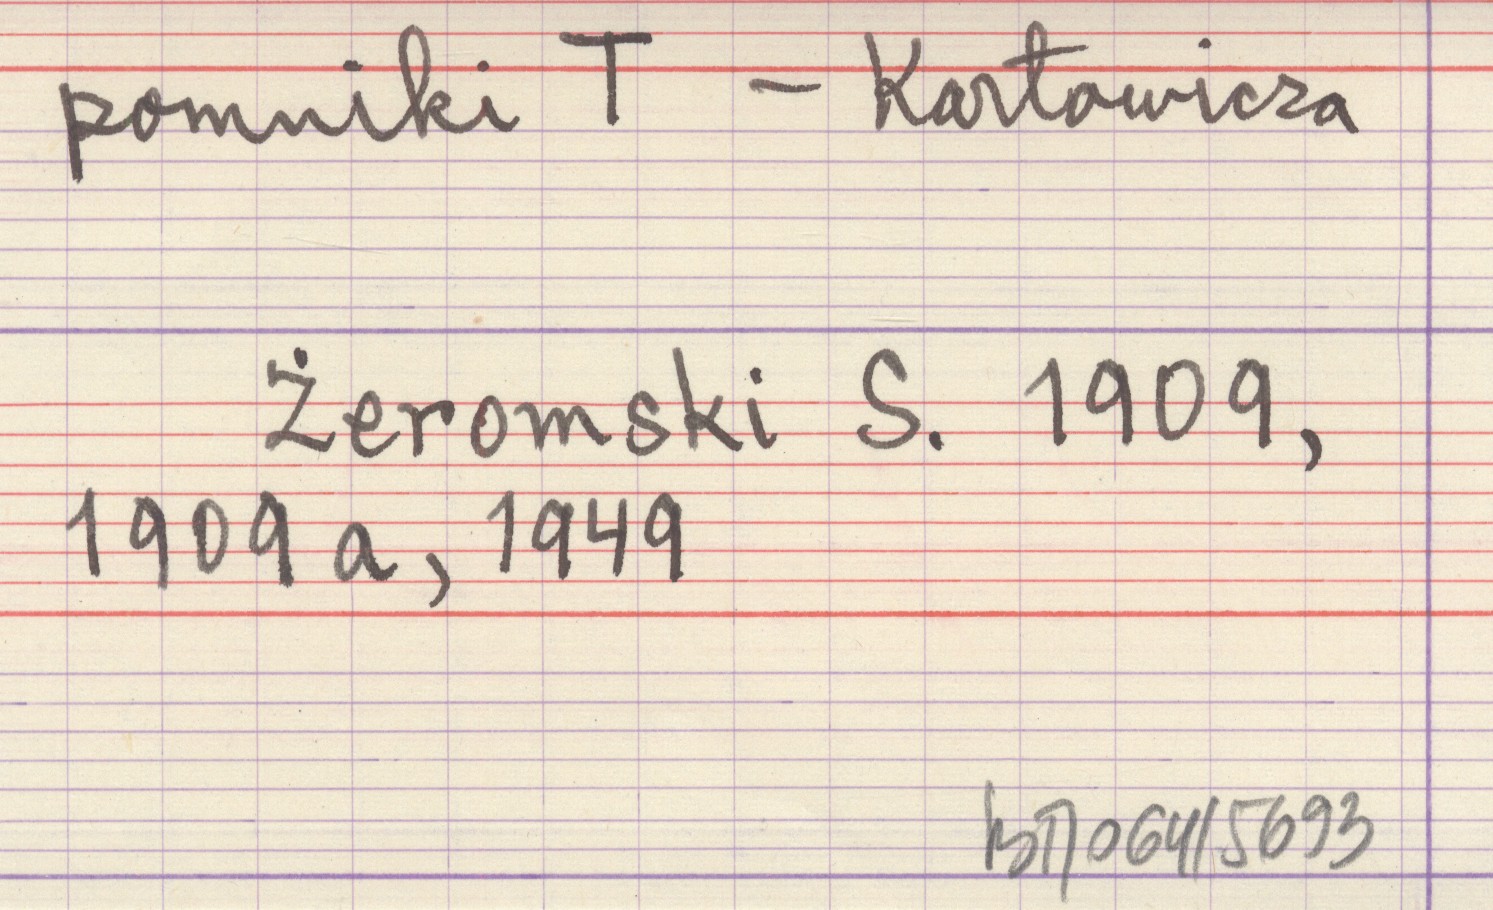 pomniki T – Karłowicza
Żeromski S. 1909,
1909a, 1949